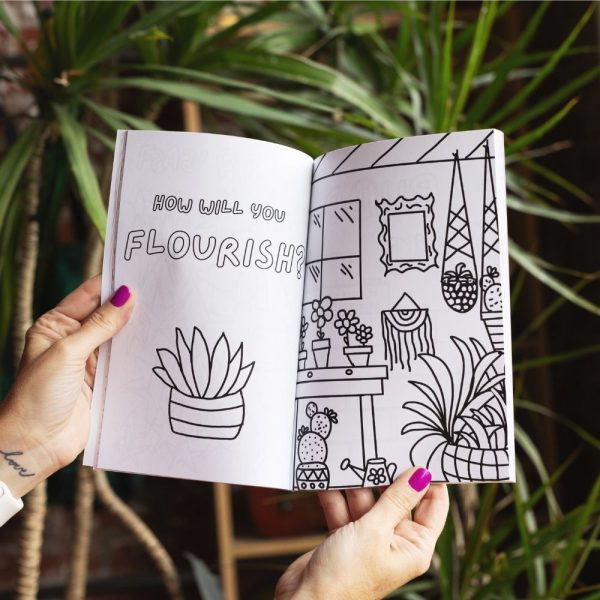 HOW WILL YOU
FLOURISH?